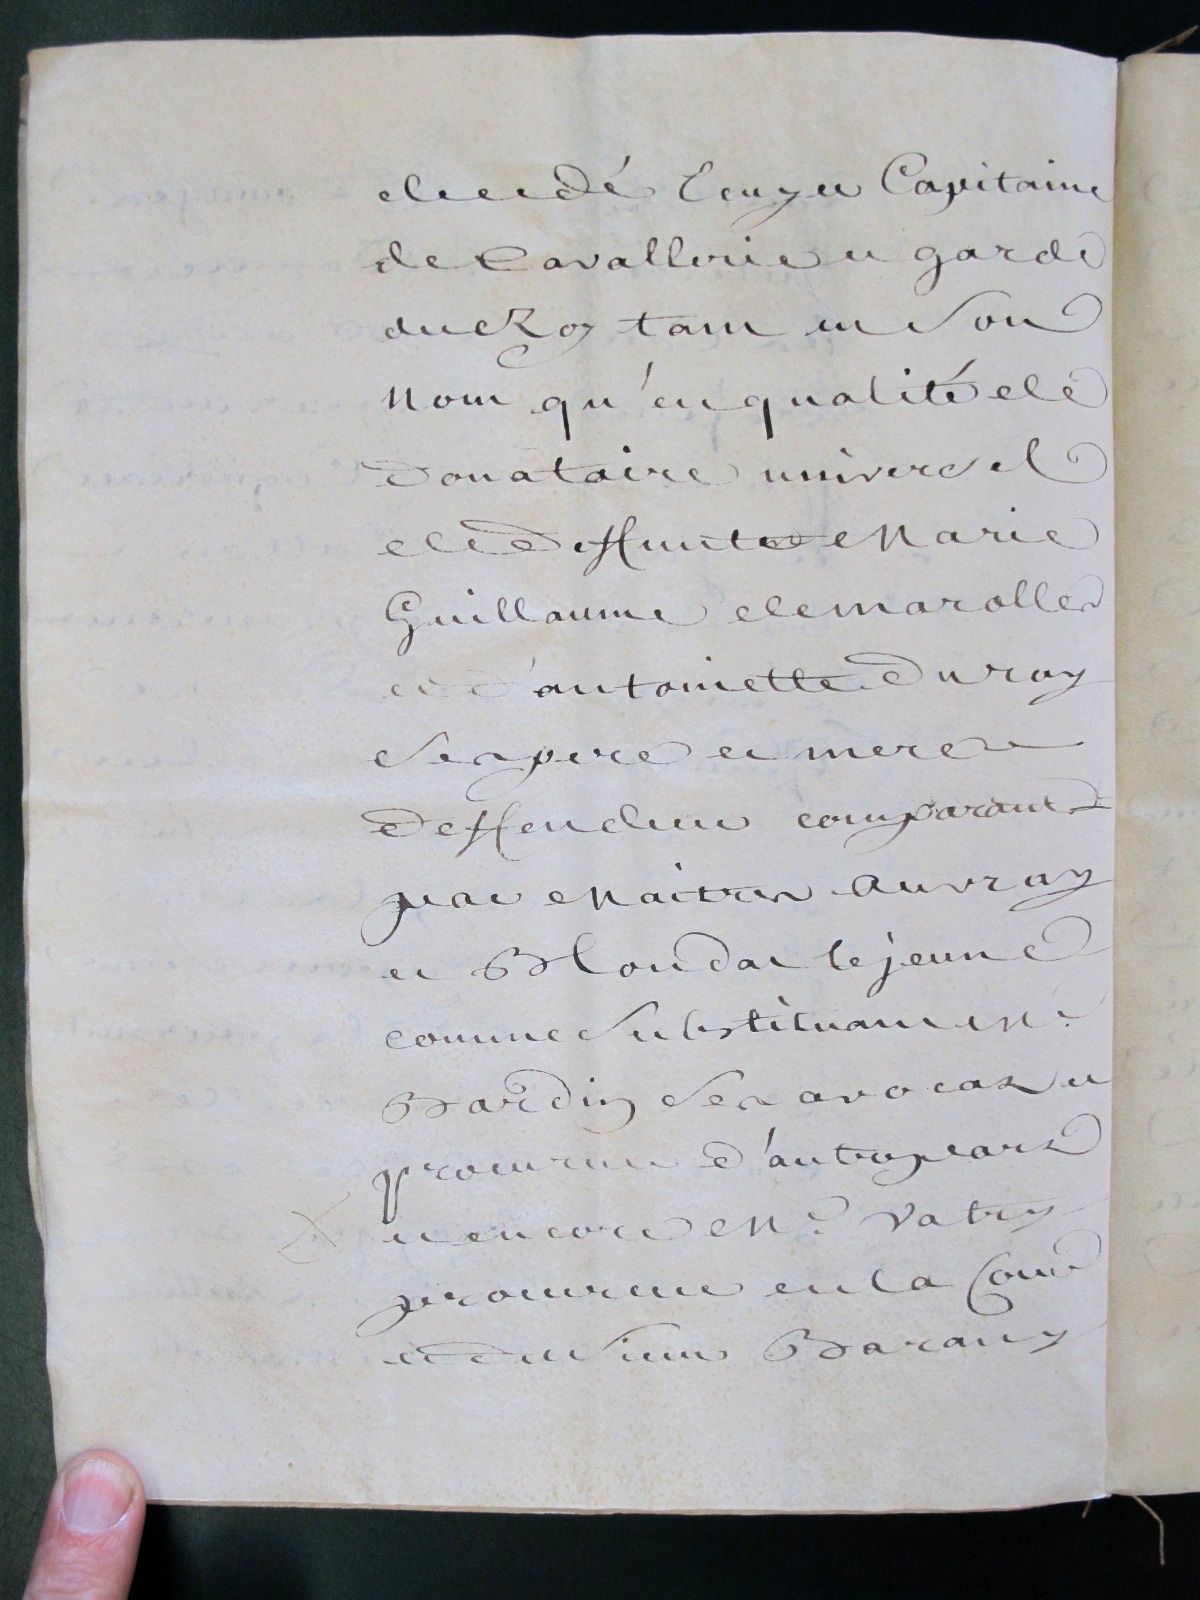 decedé Ecuyer Capitaine
de Cavallerie et garde
du Roy tant en Son
Nom qu'en qualité de
donataire universel
de deffunte Marie
Guillaume demarolles
et d'antoinette Duray
Ses pere et mere
deffendeur comparant
par Maitres Auvray
et Blondat le jeune
comme Substituant Me.
Bardin Ses avocaz et
procureur d'autre part
et encore Me. Vatry
procureur en la Cour
et du Sieur Barany